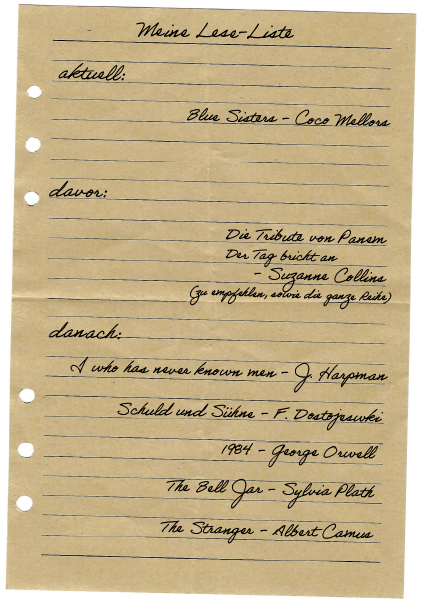 Meine Lese-Liste
aktuell:
Blue Sisters - Coco Mellors
davor:
Die Tribute von Panem
Der Tag bricht an
- Suzanne Collins
(zu empfehlen, sowie die ganze Reihe)
danach:
I who has never known men - J. Harpman
Schuld und Sühne - F. Dostojewski
1984 - George Orwell
The Bell Jar - Sylvia Plath
The Stranger - Albert Camus